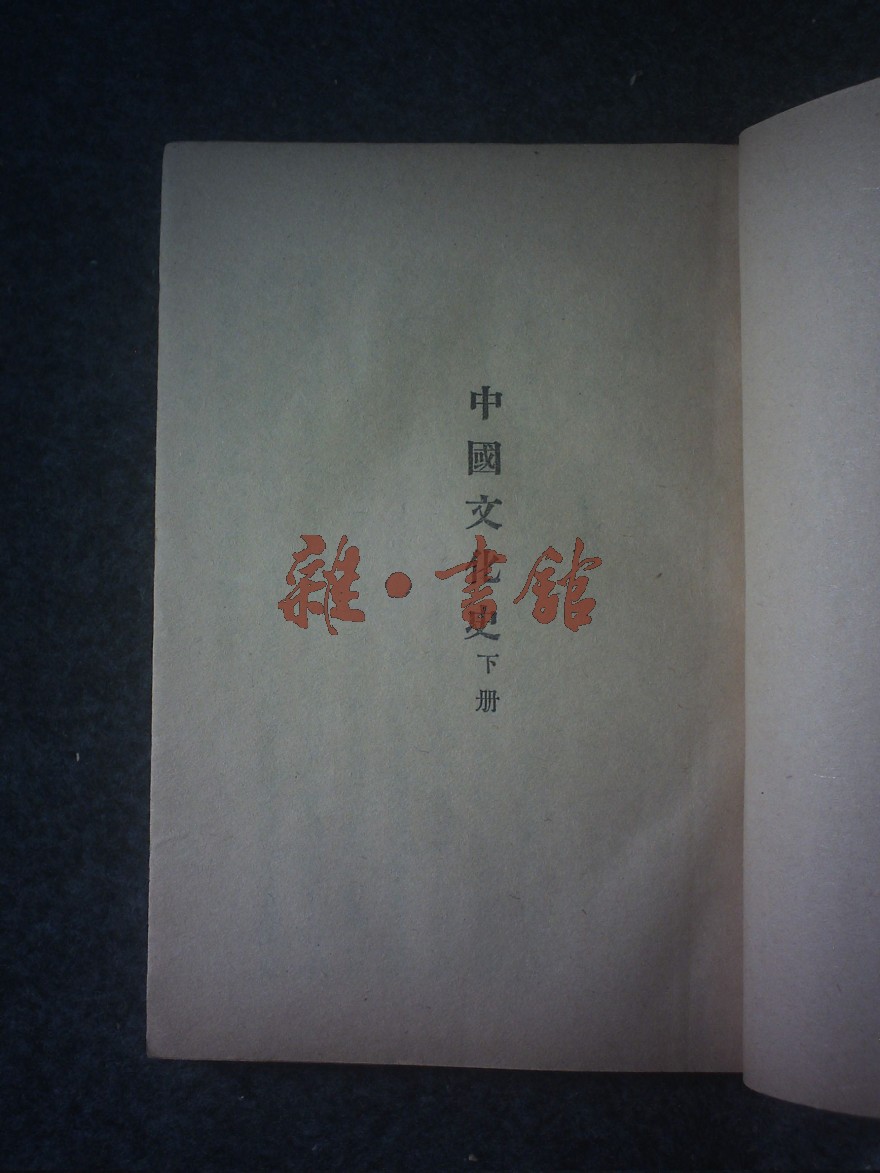 中國文化史 下册
雜·書館